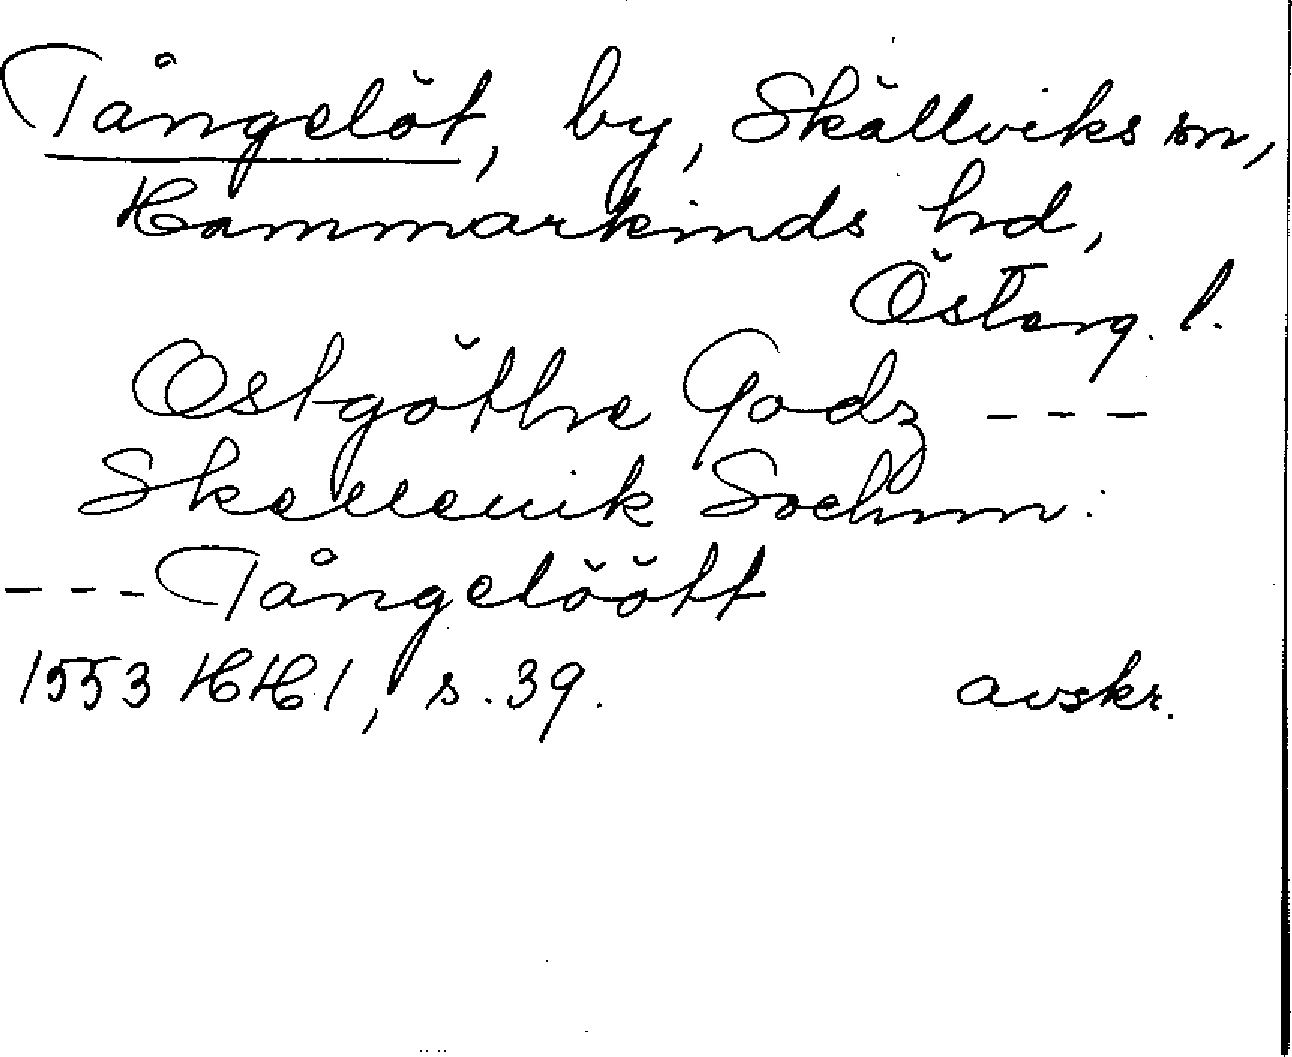 Tångelöt, by, Skällviks sn,
Hammarkinds hd,
Österg. l.
Ostgöthe Godz ---
Skelleuik Sochnn:
--- Tångelöött
1553 HH 1, s. 39. avskr.